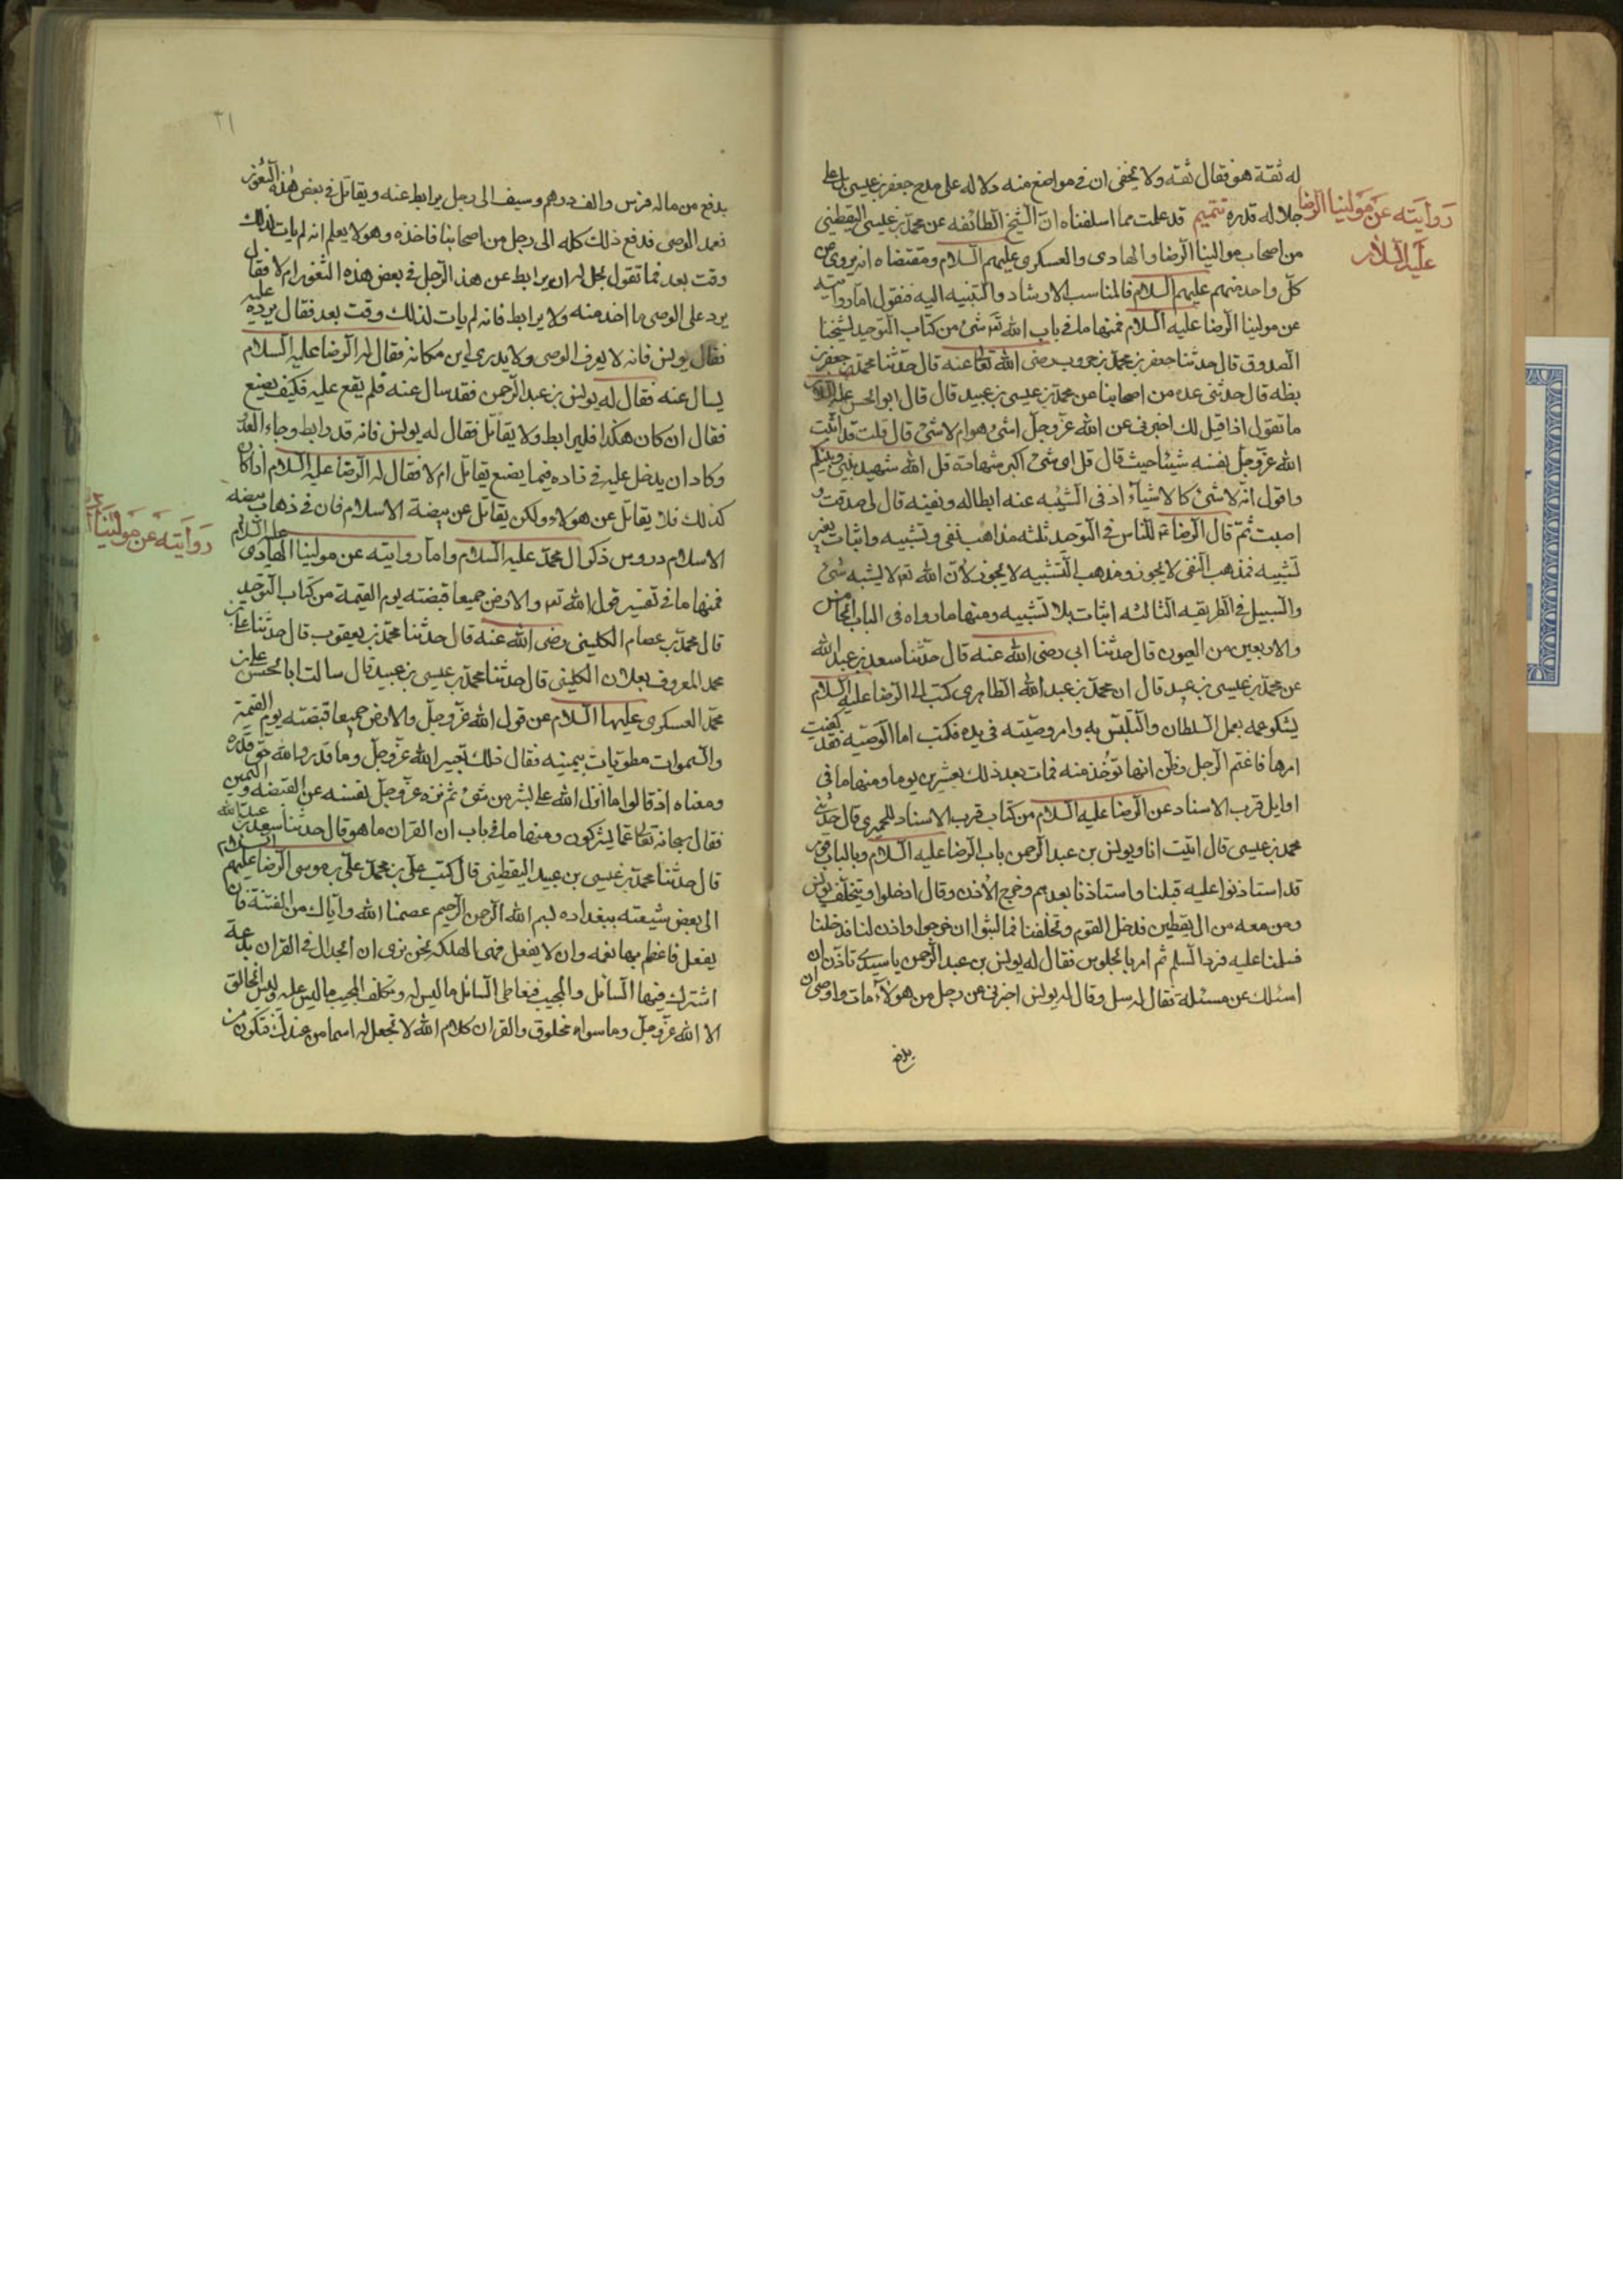 له ثقة هو فقال ثقه ولا يخفى ان فى مواضع منه دلاله على مدح جعفر بن عيسى بل على
جلاله قدره تتميم قد علمت مما اسلفناه ان الشيخ الطائفه عن محمد بن عيسى اليقطينى
روايته عن مولينا الرضا
عليه السلام
من اصحاب موالينا الرضا والهادى والعسكرى عليهم السلام ومقتضاه انه يروى عن
كل واحد منهم عليهم السلام فالمناسب الارشاد والتنبيه اليه فنقول اما روايته
عن مولينا الرضا عليه السلام فمنها ما فى باب الله تعـ شئ من كتاب التوحيد لشيخنا
الصدوق قال حدثنا جعفر بن محمد بن مسرور رضى الله تعالى عنه قال حدثنا محمد بن جعفر بن
بطه قال حدثنى عده من اصحابنا عن محمد بن عيسى بن عبيد قال قال ابو الحسن عليه السلام
ما تقول اذا قيل لك اخبرنى عن الله عز وجل اشئ هو ام لا شئ قال قلت قد اثبت
الله عز وجل نفسه شيئا حيث قال قل اى شئ اكبر شهادة قل الله شهيد بينى وبينكم
واقول انه لا شئ كالاشياء اذ فى الشيبه عنه ابطاله ونفيه قال لى صدقت و
اصبت ثم قال الرضا ع للناس فى التوحيد ثلثه مذاهب نفى وتشبيه واثبات بغير
تشبيه فمذهب النفى لا يجوز ومذهب التشبيه لا يجوز لان الله تعـ لا يشبه شئ
والسبيل فى الطريقه الثالثه اثبات بلا تشبيه ومنها ما رواه فى الباب الخامس
والاربعين من العيون قال حدثنا ابى رضى الله عنه قال حدثنا سعد بن عبد الله
عن محمد بن عيسى بن عبيد قال ان محمد بن عبد الله الطاهرى كتب الى الرضا عليه السلام
يشكو عمه بعمل السلطان والتلبس به وامر وصيته فى يده فكتب اما الوصيه فقد كفيت
امرها فاغتم الرجل وظن انها تؤخذ منه فمات بعد ذلك بعشرين يوما ومنها ما فى
اوايل قرب الاسناد عن الرضا عليه السلام من كتاب قرب الاسناد للحميرى قال حدثنى
محمد بن عيسى قال اتيت انا ويونس بن عبد الرحمن باب الرضا عليه السلام وبالباب قوم
قد استاذنوا عليه قبلنا واستاذنا بعدهم وخرج الاذن وقال ادخلوا ويتخلف يونس
ومن معه من ال يقطين فدخل القوم وتخلفنا فما لبثوا ان خرجوا واذن لنا فدخلنا
فسلمنا عليه فرد السلم ثم امر بالجلوس فقال له يونس بن عبد الرحمن يا سيدى تاذن ان
اسئلك عن مسئلة فقال له سل وقال له يونس اخبرنى عن رجل من هؤلاء مات واوصى ان
بلغ
٢١
يدفع من ماله فرس والف درهم وسيف الى رجل يرابط عنه ويقاتل فى بعض هذه الثغور
فعمد الوصى فدفع ذلك كله الى رجل من اصحابنا فاخذه وهو لا يعلم انه لم يات لذلك
وقت بعد فما تقول يحل له ان يرابط عن هذ الرجل فى بعض هذه الثغور ام لا فقال
يرد على الوصى ما اخذ منه ولا يرابط فانه لم يات لذلك وقت بعد فقال يرده عليه
فقال يونس فانه لا يعرف الوصى ولا يدرى اين مكانه فقال له الرضا عليه السلام
يسال عنه فقال له يونس بن عبد الرحمن فقد سال عنه فلم يقع عليه فكيف يصنع
فقال ان كان هكذا فليرابط ولا يقاتل فقال له يونس فانه قد رابط وجاء العدو
وكاد ان يدخل عليه فى داره فيما يصنع يقاتل ام لا فقال له الرضا عليه السلام اذا كان
كذلك فلا يقاتل عن هولاء ولكن يقاتل عن بيضة الاسلام فان فى ذهاب بيضه
الاسلام دروس ذكر ال محمد عليه السلام واما روايته عن مولينا الهادى عليه السلام
روايته عن مولينا
فمنها ما فى تفسير قول الله تعـ والارض جميعا قبضته يوم القيمة من كتاب التوحيد
قال محمد بن عصام الكلينى رضى الله عنه قال حدثنا محمد بن يعقوب قال حدثنا على بن
محمد المعروف بعلان الكلينى قال حدثنا محمد بن عيسى بن عبيد قال سالت ابا الحسن على بن
محمد العسكرى عليهما السلام عن قول الله عز وجل والارض جميعا قبضته يوم القيمة
والسموات مطويات بيمينه فقال ذلك تعيير الله عز وجل وما قدروا الله حق قدره
ومعناه اذ قالوا ما انزل الله على بشر من شئ ثم نزه عز وجل نفسه عن القبضه واليمين
فقال سبحانه تعالى عما يشركون ومنها ما فى باب ان القران ما هو قال حدثنا سعد بن عبد الله
قال حدثنا محمد بن عيسى بن عبيد اليقطينى قال كتب على بن محمد على بن موسى الرضا عليهم السلام
الى بعض شيعته ببغداد بسم الله الرحمن الرحيم عصمنا الله واياك من الفتنة فان
يفعل فاعظم بها نعمه وان لا يفعل فهى الهلكه نحن نرى ان الجدال فى القران بدعة
اشترك فيها السائل والمجيب فتعاطى السائل ما ليس له وتكلف المجيب ما ليس عليه وليس الخالق
الا الله عز وجل وما سواه مخلوق والقران كلام الله لا تجعل له اسما من عندك فتكون من